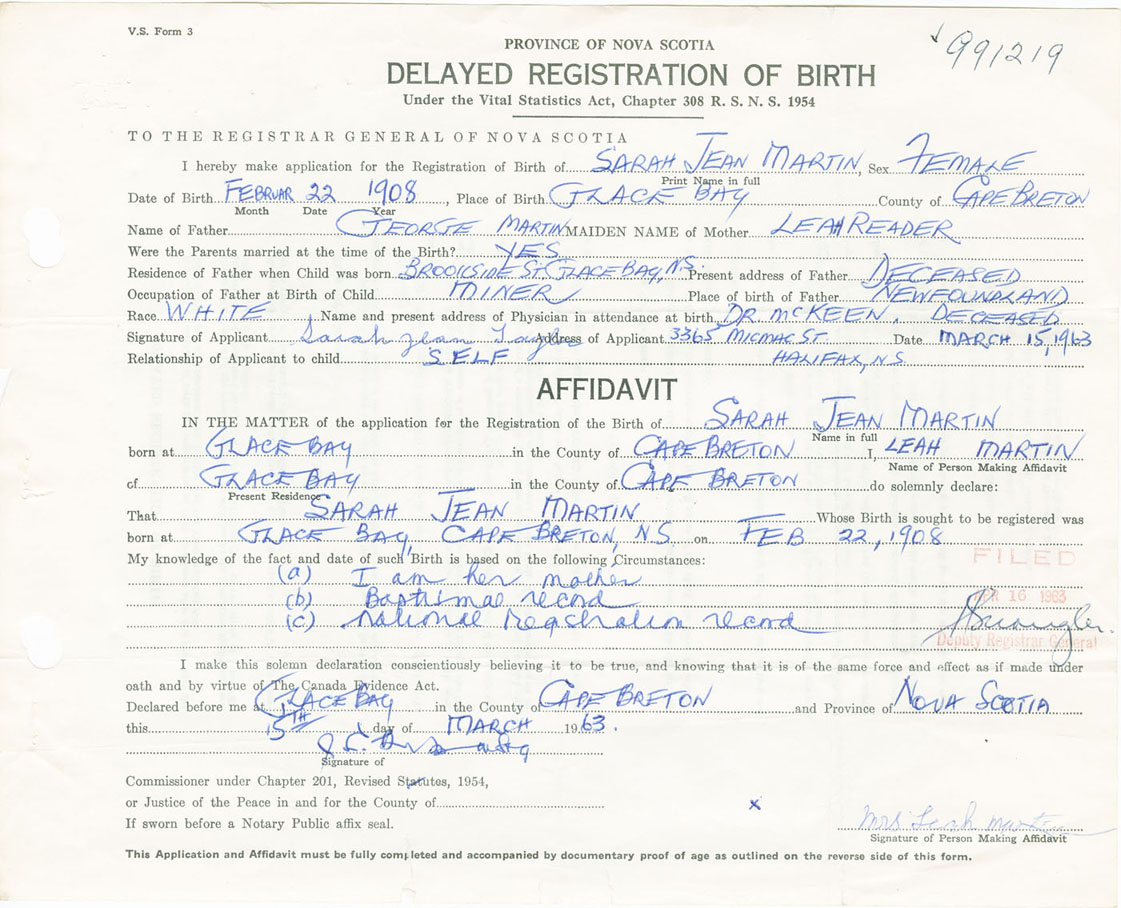 V.S. Form 3
991219
PROVINCE OF NOVA SCOTIA
DELAYED REGISTRATION OF BIRTH
Under the Vital Statistics Act, Chapter 308 R. S. N. S. 1954
TO THE REGISTRAR GENERAL OF NOVA SCOTIA
I hereby make application for the Registration of Birth of SARAH JEAN MARTIN, Sex FEMALE
Print Name in full
Date of Birth FEBRUAR 22 1908, Place of Birth GLACE BAY County of CAPE BRETON
Month Date Year
Name of Father GEORGE MARTIN MAIDEN NAME of Mother LEAH READER
Were the Parents married at the time of the Birth? YES
Residence of Father when Child was born BROOKSIDE ST. GLACE BAY, N.S. Present address of Father DECEASED
Occupation of Father at Birth of Child MINER Place of birth of Father NEWFOUNDLAND
Race WHITE, Name and present address of Physician in attendance at birth DR. MCKEEN. DECEASED
Signature of Applicant Sarah Jean Taylor Address of Applicant 3365 MICMAC ST. Date MARCH 15, 1963
Relationship of Applicant to child SELF HALIFAX, N.S.
AFFIDAVIT
IN THE MATTER of the application for the Registration of the Birth of SARAH JEAN MARTIN
Name in full
born at GLACE BAY in the County of CAPE BRETON I, LEAH MARTIN
Name of Person Making Affidavit
of GLACE BAY in the County of CAPE BRETON do solemnly declare:
Present Residence
That SARAH JEAN MARTIN Whose Birth is sought to be registered was
born at GLACE BAY, CAPE BRETON, N.S. on FEB 22, 1908
My knowledge of the fact and date of such Birth is based on the following Circumstances:
FILED
(a) I am her mother
(b) Baptismal record
16 1963
(c) National Registration record
Deputy Registrar General
I make this solemn declaration conscientiously believing it to be true, and knowing that it is of the same force and effect as if made under
oath and by virtue of The Canada Evidence Act.
Declared before me at GLACE BAY in the County of CAPE BRETON and Province of NOVA SCOTIA
this 15TH day of MARCH 1963.
Signature of
Commissioner under Chapter 201, Revised Statutes, 1954,
or Justice of the Peace in and for the County of
x
If sworn before a Notary Public affix seal.
Mrs Leah Martin
Signature of Person Making Affidavit
This Application and Affidavit must be fully completed and accompanied by documentary proof of age as outlined on the reverse side of this form.